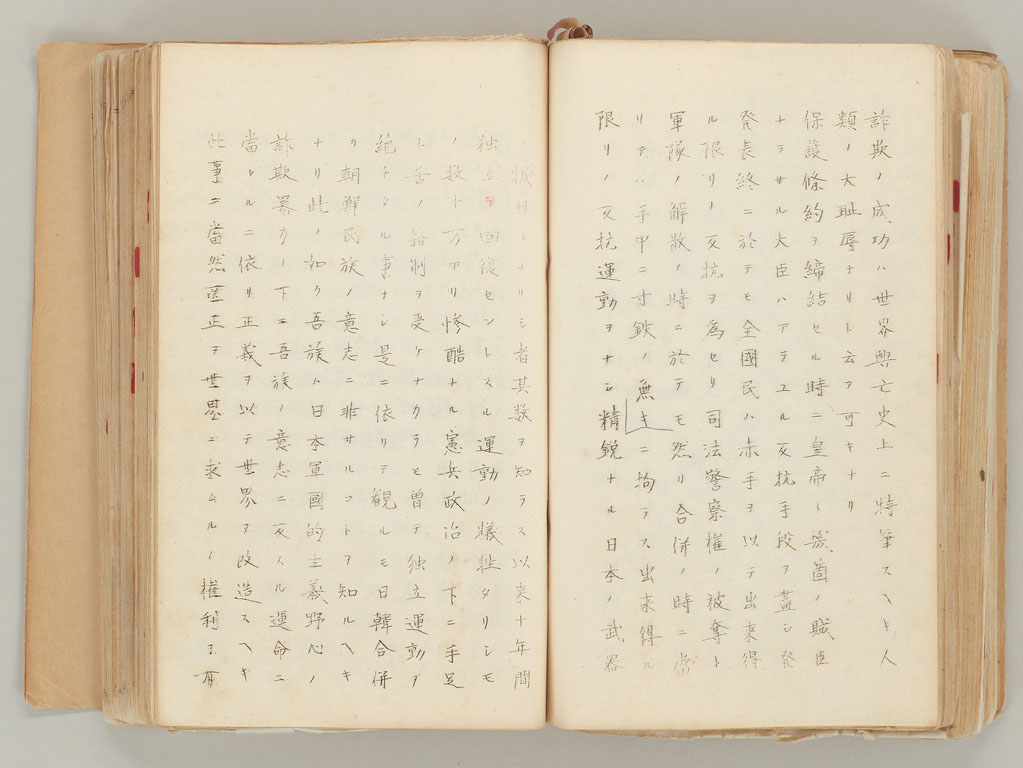 詐欺ノ成功ハ世界興亡史上ニ特筆スヘキ人
類ノ大耻辱ナリト云フ可キナリ
保護條約ヲ締結セル時ニ皇帝ト幾箇ノ賊臣
ナラサル大臣ハアラユル反抗手段ヲ盡シ発
発表終ニ於テモ全國民ハ赤手ヲ以テ出来得
ル限リノ反抗ヲ為セリ司法警察権ノ被奪ト
軍隊ノ解散ノ時ニ於テモ然リ合併ノ時ニ當
リテハ手中ニ寸鉄ノ無キニ拘ラス出来得ル
限リノ反抗運動ヲナシ精鋭ナル日本ノ武器
ノ犠牲トナリシ者其数ヲ知ラス以来十年間
独立ヲ回復セントスル運動ノ犠牲タリシモ
ノ数十万アリ惨酷ナル憲兵政治ノ下ニ手足
ト舌ノ箝制ヲ受ケナカラモ曽テ独立運動ヲ
絶チタル事ナシ是ニ依リテ観ルモ日韓合併
カ朝鮮民族ノ意志ニ非サルコトヲ知ルヘキ
ナリ此ノ如ク吾族ハ日本軍國的主義野心ノ
詐欺暴力ノ下ニ吾族ノ意志ニ反スル運命ニ
當レルニ依リ正義ヲ以テ世界ヲ改造スヘキ
此事ニ當然匡正ヲ世界ニ求ムルノ権利ヲ有